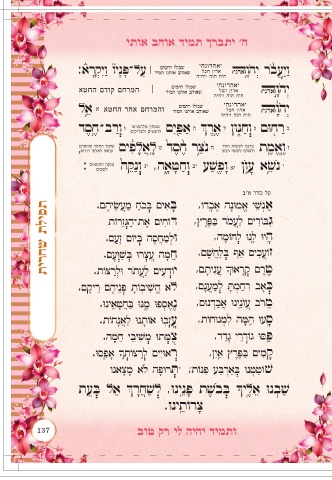 ה' יתברך תמיד אוהב אותי
וַיַּעֲבֹר יְהוָה עַל־פָּנָיו וַיִּקְרָא:
יְהוָה המרחם קודם החטא
יְהוָה והמרחם אחר החטא אֵל
רַחוּם וְחַנּוּן אֶרֶךְ אַפַּיִם וְרַב־חֶסֶד
וֶאֱמֶת נֹצֵר חֶסֶד לָאֲלָפִים
נֹשֵׂא עָוֹן וָפֶשַׁע וְחַטָּאָה, וְנַקֵּה:
על סדר א"ב
אַנְשֵׁי אֱמוּנָה אָבָדוּ, בָּאִים בְּכֹחַ מַעֲשֵׂיהֶם,
גִּבּוֹרִים לַעֲמֹד בַּפֶּרֶץ, דּוֹחִים אֶת־הַגְּזֵרוֹת
הָיוּ לָנוּ לְחוֹמָה, וּלְמַחְסֶה בְּיוֹם זָעַם,
זוֹעֲכִים אַף בְּלַחֲשָׁם, חֵמָה עָצְרוּ בְּשַׁוְּעָם,
טֶרֶם קְרָאוּךָ עֲנִיתָם, יוֹדְעִים לַעֲתֹר וּלְרַצּוֹת,
כְּאָב רִחַמְתָּ לְמַעֲנָם, לֹא הֱשִׁיבוֹתָ פְּנֵיהֶם רֵיקָם,
מֵרֹב עֲוֹנֵינוּ אֲבַדְנוּם, נֶאֶסְפוּ מֶנּוּ בַּחֲטָאֵינוּ,
סָעוּ הֵמָּה לִמְנוּחוֹת, עָזְבוּ אוֹתָנוּ לַאֲנָחוֹת,
פַּסּוּ גוֹדְרֵי גָדֵר, צֻמְּתוּ מְשִׁיבֵי חֵמָה,
קָמִים בַּפֶּרֶץ אַיִן, רְאוּיִים לְרַצּוֹתְךָ אָפֵסוּ,
שׁוֹטַטְנוּ בְּאַרְבַּע פִּנּוֹת, תְּרוּפָה לֹא מָצָאנוּ
שַׁבְנוּ אֵלֶיךָ בְּבֹשֶׁת פָּנֵינוּ, לְשַׁחֲרָךְ אֵל בְּעֵת
צָרוֹתֵינוּ.
ותמיד יהיה לי רק טוב
תפילת שחרית
137